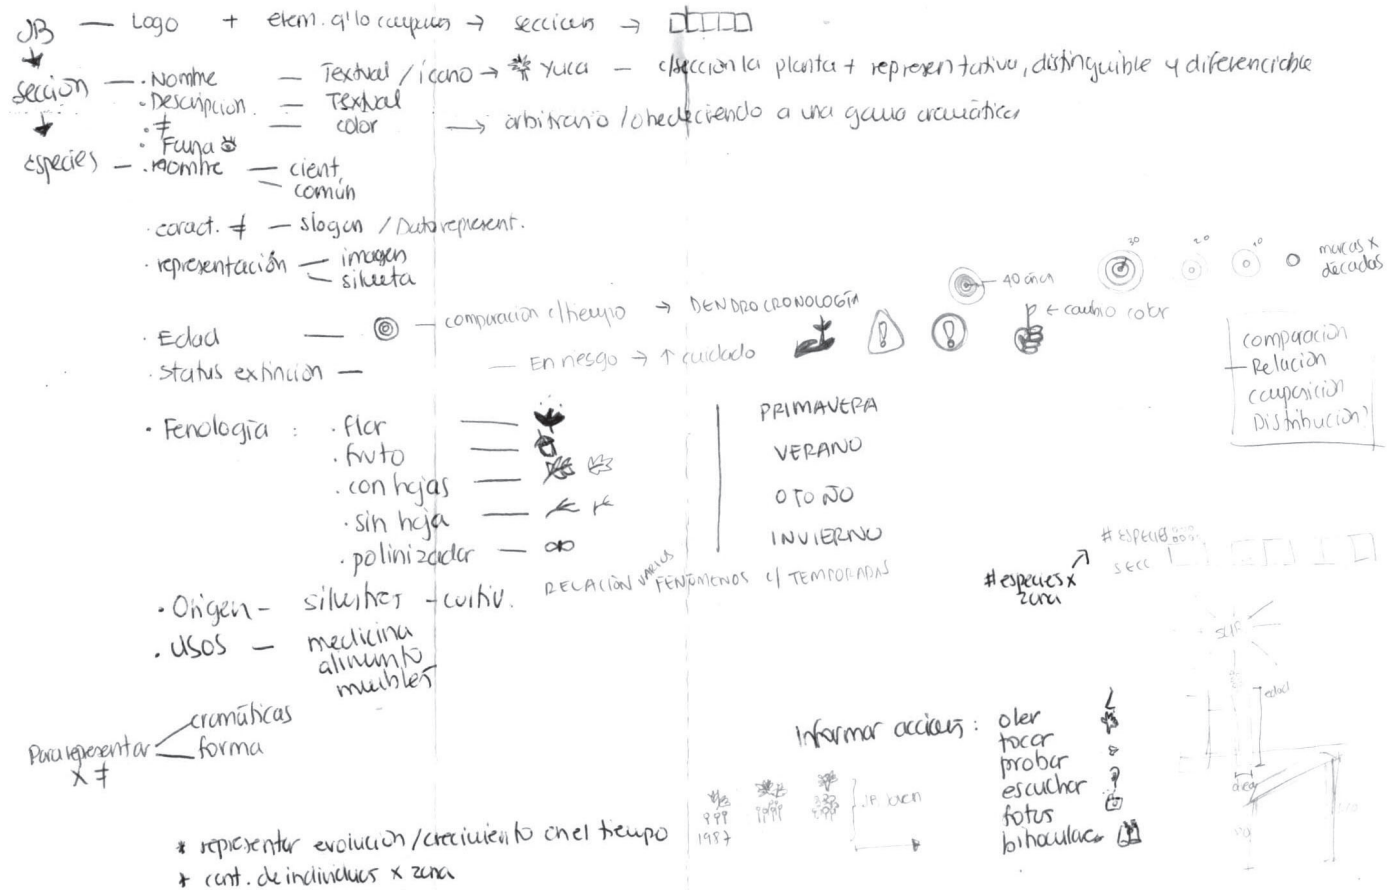 JB — Logo + elem. q' lo componen → secciones →
sección — · Nombre — Textual / ícono → Yuca — c/sección la planta + representativa, distinguible y diferenciable
· Descripcion. — Textual
· ≠ — color → arbitrario / obedeciendo a una gama cromática
· Fauna
especies — · Nombre — cient.
común
· caract. ≠ — slogan / Dato represent.
· representación — imagen
silueta
30 20 10 marcas x
décadas
40 años
· Edad — comparación c/tiempo → DENDROCRONOLOGÍA
← cambio color
· Status extinción — En riesgo → ↑ cuidado
comparación
Relación
composición
Distribución?
· Fenología : · flor —
· fruto —
· con hojas —
· sin hoja —
· polinizador —
PRIMAVERA
VERANO
OTOÑO
INVIERNO
RELACIÓN VARIOS FENÓMENOS c/ TEMPORADAS
· Origen - silvestres - cultiv.
· USOS — medicina
alimento
muebles
# ESPECIES
SECC
# especies x
zona
edad
Para representar
x ≠
cromáticas
forma
Informar acciones : oler
tocar
probar
escuchar
fotos
binoculares
1987
* representar evolución / crecimiento en el tiempo
* cant. de individuos x zona